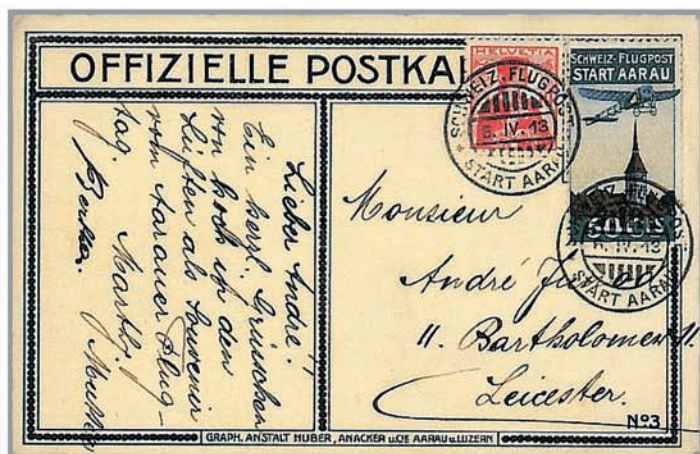 OFFIZIELLE POSTKA
HELVETIA
SCHWEIZ. FLUGPOST
START AARAU
SCHWEIZ. FLUGPOST
6. IV. 13
START AARAU
50 Cts
6. IV. 13
START AARAU
Lieber André!
Ein herzl. Grüsschen
von hoch in den
Lüften als Souvenir
vom Aarauer Flug-
tag.
Marthy.
Mutter
Berta.
Monsieur
André
11. Bartholomew
Leicester.
No 3
GRAPH. ANSTALT HUBER, ANACKER u. CIE AARAU u. LUZERN